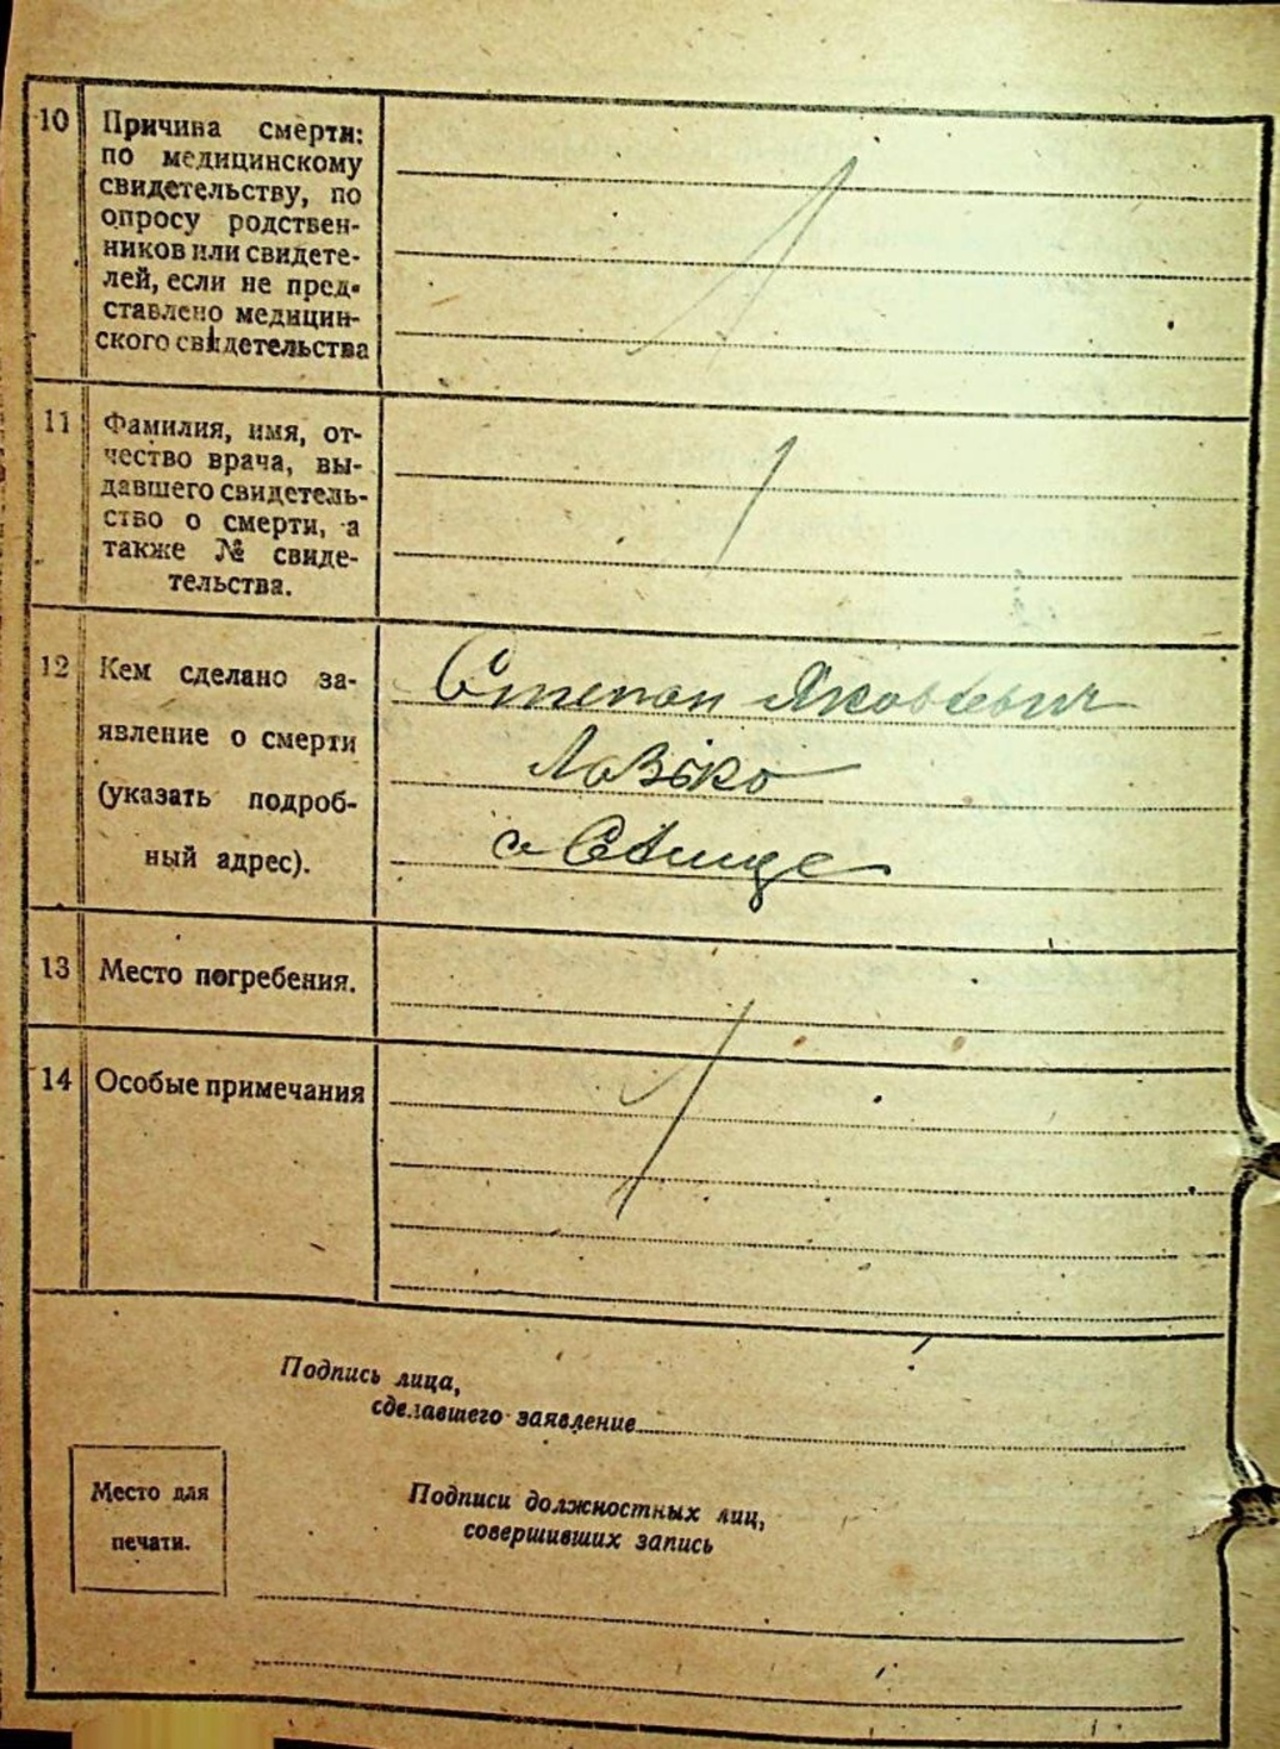 10 Причина смерти:
по медицинскому
свидетельству, по
опросу родствен-
ников или свидете-
лей, если не пред-
ставлено медицин-
ского свидетельства
11 Фамилия, имя, от-
чество врача, вы-
давшего свидетель-
ство о смерти, а
также № свиде-
тельства.
12 Кем сделано за-
явление о смерти
(указать подроб-
ный адрес).
Степан Яковлевич
с
13 Место погребения.
14 Особые примечания
Подпись лица,
сделавшего заявление
Место для
печати.
Подписи должностных лиц,
совершивших запись